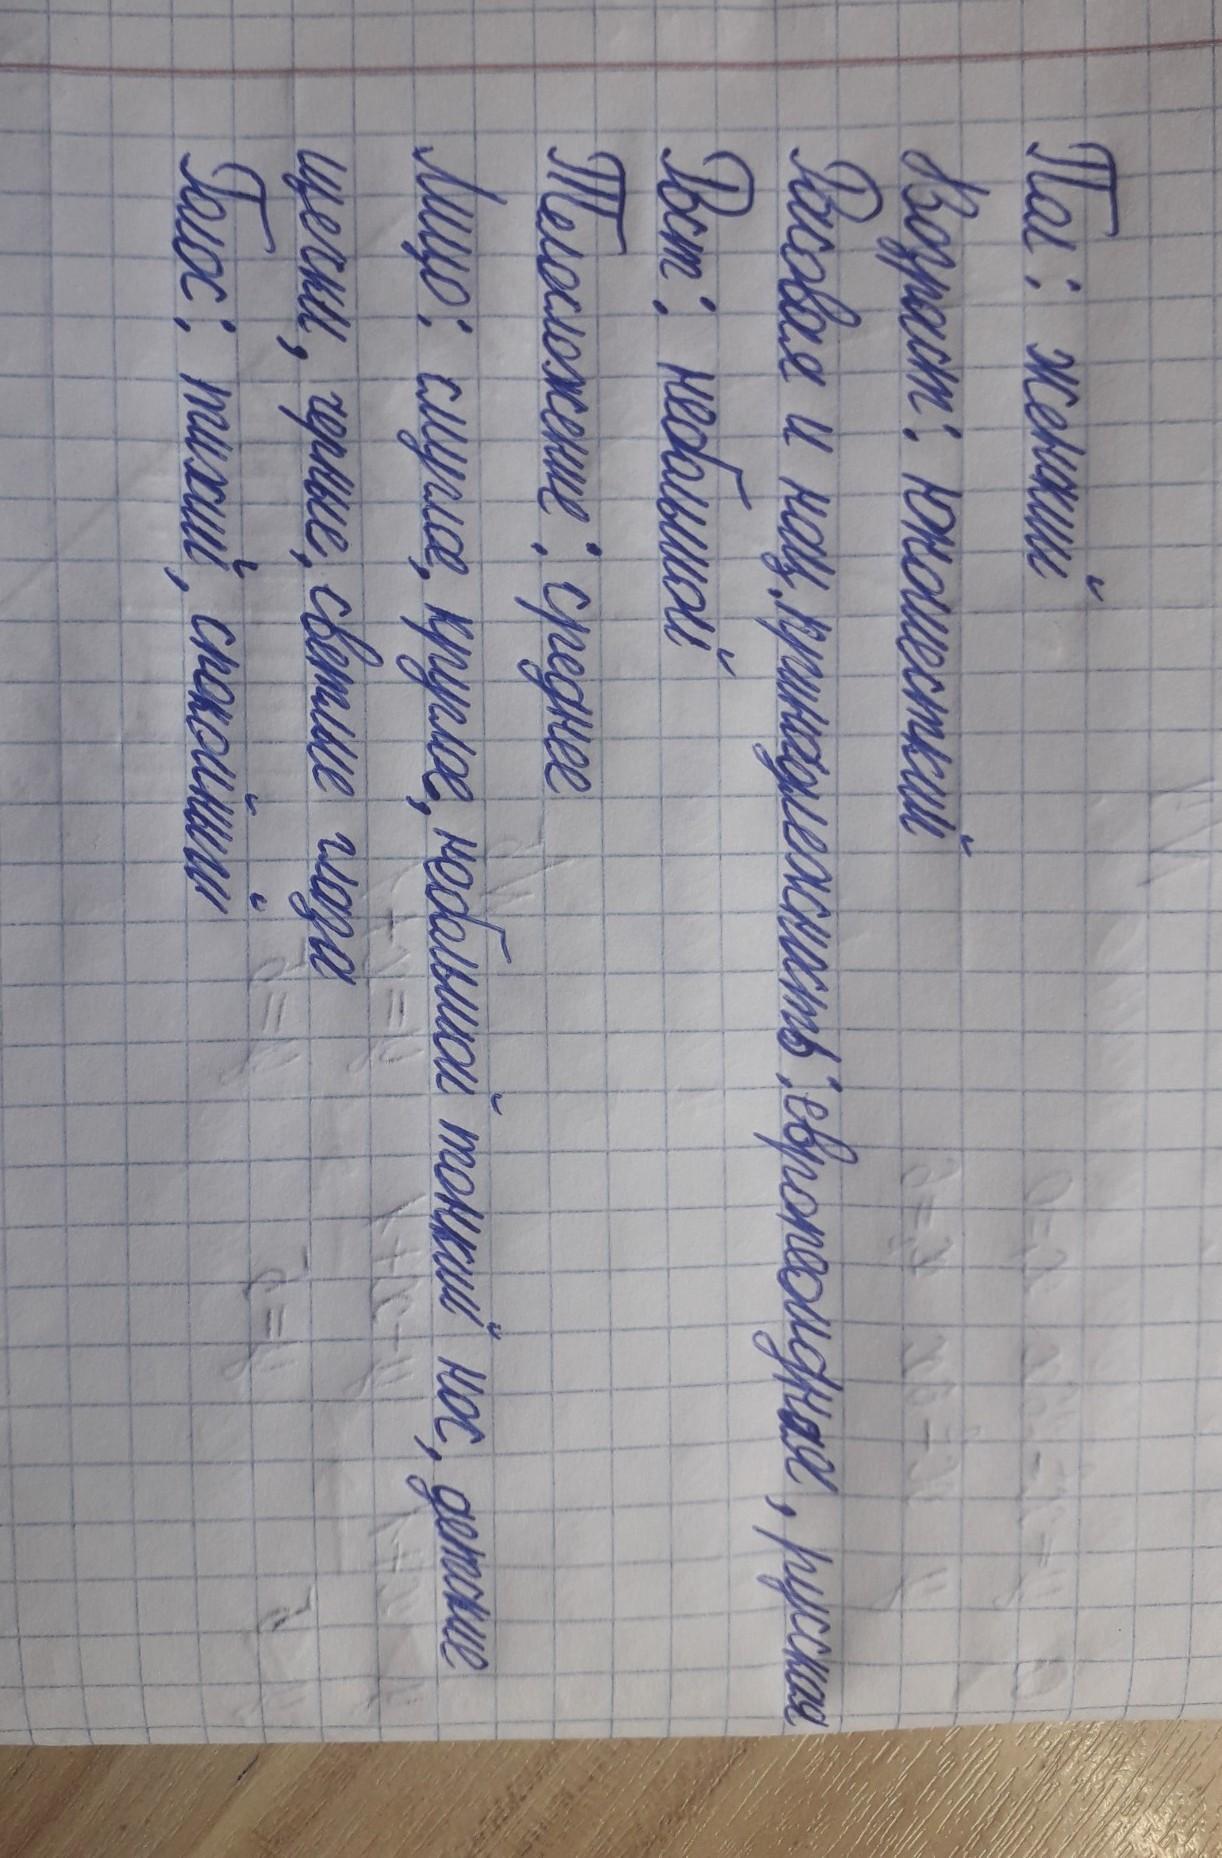 Пол: женский
Возраст: юношеский
Расовая и нац. принадлежность: европеоидная, русская
Рост: небольшой
Телосложение: среднее
Лицо: смуглое, круглое, небольшой тонкий нос, детские
щечки, черные, светлые глаза
Голос: тихий, спокойный